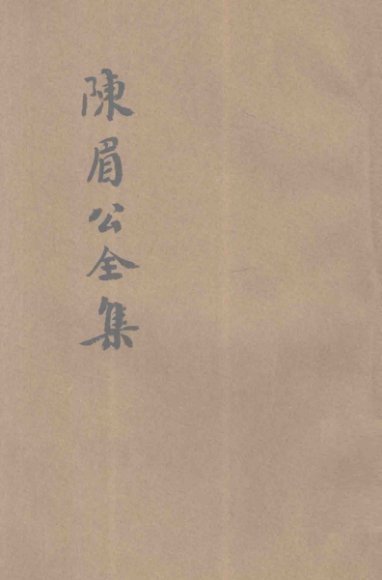 陳眉公全集